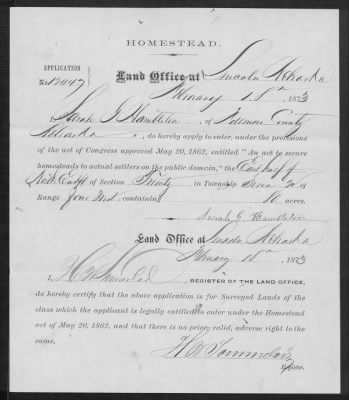 HOMESTEAD.
APPLICATION
No. 12447
Land Office at Lincoln Nebraska
February 18th 1873
I, Sarah J Hambleton, of Jefferson County
Nebraska, do hereby apply to enter, under the provisions
of the act of Congress approved May 20, 1862, entitled "An act to secure
homesteads to actual settlers on the public domain," the East half of
North East ¼ of Section Twenty in Township Seven N of
Range Four West, containing 80 acres.
Sarah J Hambleton
Land Office at Lincoln Nebraska
February 18th 1873
I, REGISTER OF THE LAND OFFICE,
do hereby certify that the above application is for Surveyed Lands of the
class which the applicant is legally entitled to enter under the Homestead
act of May 20, 1862, and that there is no prior, valid, adverse right to the
same.
Register.